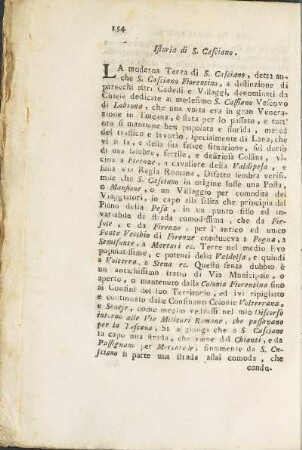 154
Istoria di S. Casciano.
LA moderna Terra di S. Casciano, detta an-
che S. Casciano Fiorentino, a distinzione di
parecchi altri Castelli e Villaggi, denominati da
Chiese dedicate al medesimo S. Cassiano Vescovo
di che una volta era in gran Venera-
zione in Toscana, è stata per lo passato, e tutt'
ora si mantiene ben popolata e florida, mercè
del traffico e lavorìo, specialmente di Lana, che
vi si fa, e della sua felice situazione, sul dorso
di una salubre, fertile, e deliziosa Collina, vi-
cina a Firenze, a cavaliere della Valdipesa, e
sulla via Regia Romana. Difatto sembra verisi-
mile che S. Casciano in origine fosse una Posta,
o Mansione, o un Villaggio per comodità dei
Viaggiatori, in capo alla salita che principia dal
Piano della Pesa, in un punto fisso ed in-
variabile di strada comodissima, che da Fie-
sole, e da Firenze, per l'antico ed unico
Ponte Vecchio di Firenze conduceva a Pogna, a
Semifonte, a Marturi ec. Terre nel medio Evo
popolatissime, e potenti della Valdelsa, e quindi
a Volterra, a Siena ec. Questo senza dubbio è
un antichissimo tratto di Via Municipale, o
aperto, o mantenuto dalla Colonia Fiorentina fino
ai Confini del suo Territorio, ed ivi ripigliato
e continuato dalle Confinanti Colonie Volterrana,
e Senese, come meglio vedrassi nel mio Discorso
intorno alle Vie Militari Romane, che passavano
per la Toscana. Si aggiunga che a S. Casciano
fa capo una strada, che viene dal Chianti, e da
Passignano per Mercatale; finamente da S. Ca-
sciano si parte una strada assai comoda, che
condu-